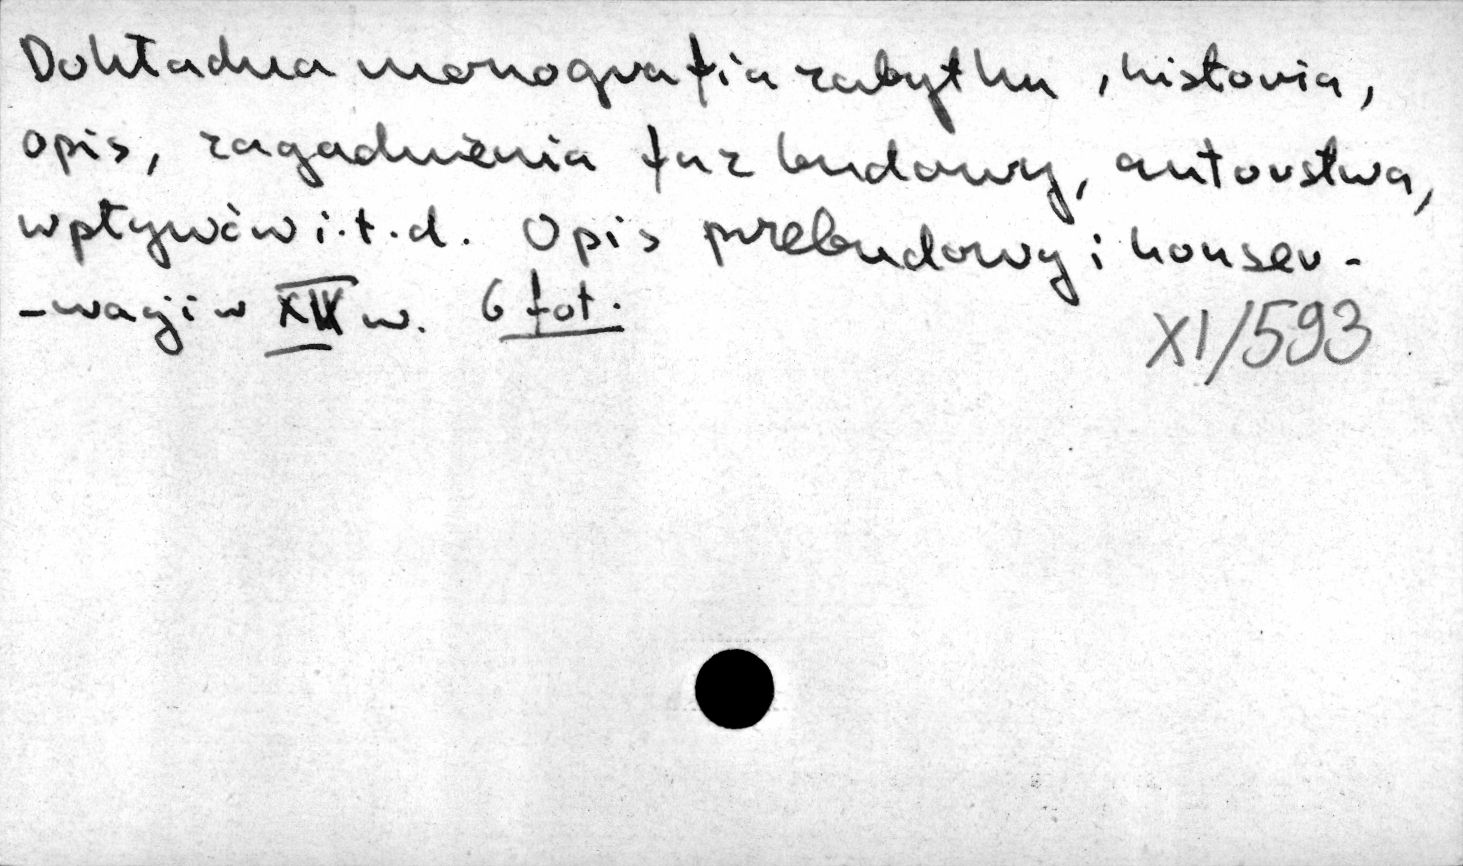 Dokładna monografia zabytku, historia,
opis, zagadnienia faz budowy, autorstwa,
wpływów i.t.d. Opis przebudowy i konser-
-wacji w w. 6 fot.
XI/593